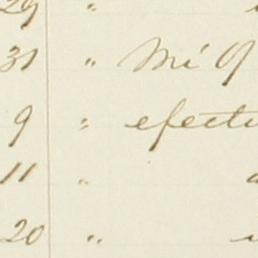 29 "
31 " Mi O
9 " efecti
11 "
20 "